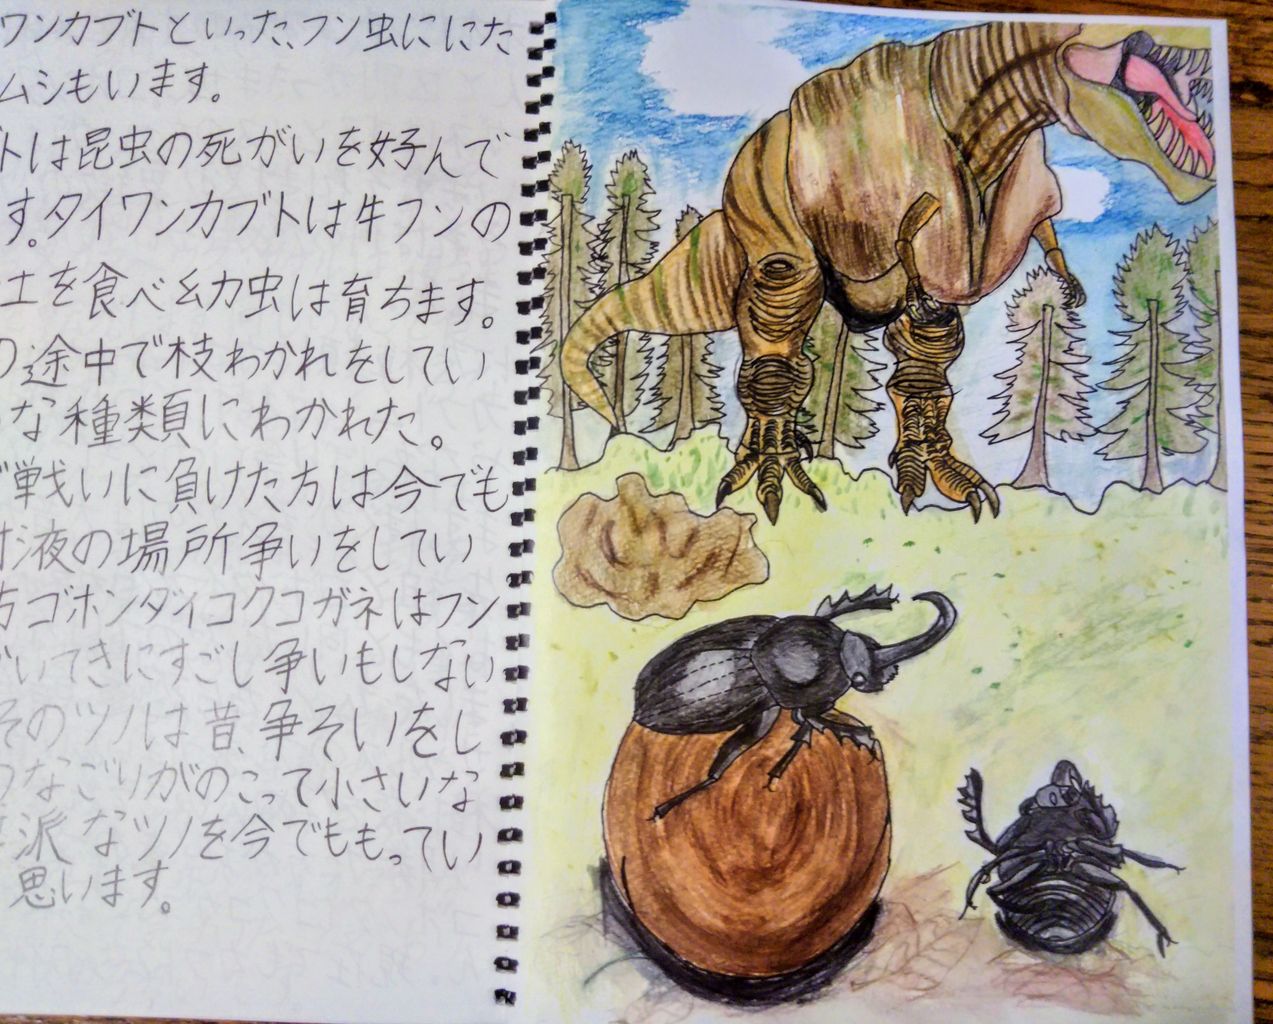 ワンカブトといった、フン虫ににた
ムシもいます。
トは昆虫の死がいを好んで
す。タイワンカブトは牛フンの
土を食べ幼虫は育ちます。
の途中で枝わかれをしてい
な種類にわかれた。
戦いに負けた方は今でも
液の場所争いをしてい
方ゴホンダイコクコガネはフン
いてきにすごし争いもしない
そのツノは昔、争そいをし
なごりがのこって小さいな
派なツノを今でももってい
思います。